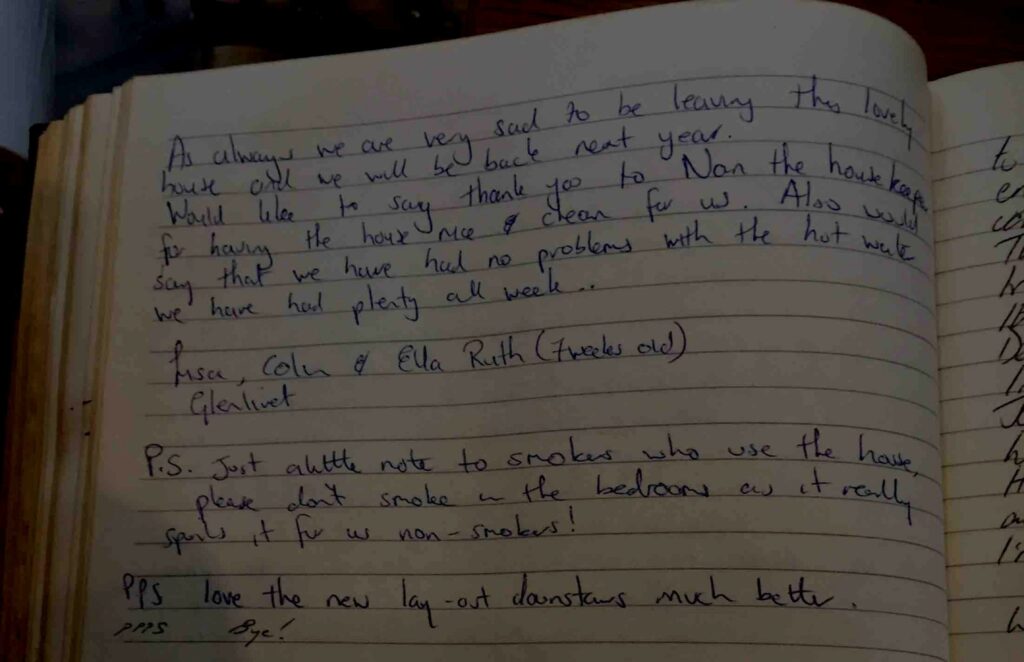 As always we are very sad to be leaving this lovely
house and we will be back next year.
Would like to say thank you to Nan the housekeeper
for having the house nice & clean for us. Also would
say that we have had no problems with the hot water
we have had plenty all week..
Lisa, Colin & Ella Ruth (7 weeks old)
Glenlivet
P.S. Just a little note to smokers who use the house,
please don't smoke in the bedrooms as it really
spoils it for us non-smokers!
PPS love the new lay-out downstairs much better.
PPPS Bye!